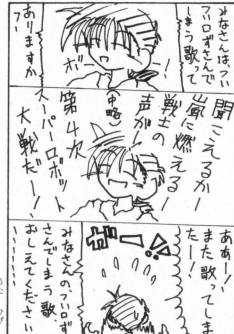 みなさんは、つい
口ずさんで
しまう歌って
ありますか
ー
ボー
聞こえるかー
嵐に燃えるー
戦士の
声がー
中略
第4次
スーパーロボット
大戦だー!、
ああー!
また歌ってしま
たー!
ガーー!!
みなさんのつい口ず
さんでしまう歌、
おしえてください